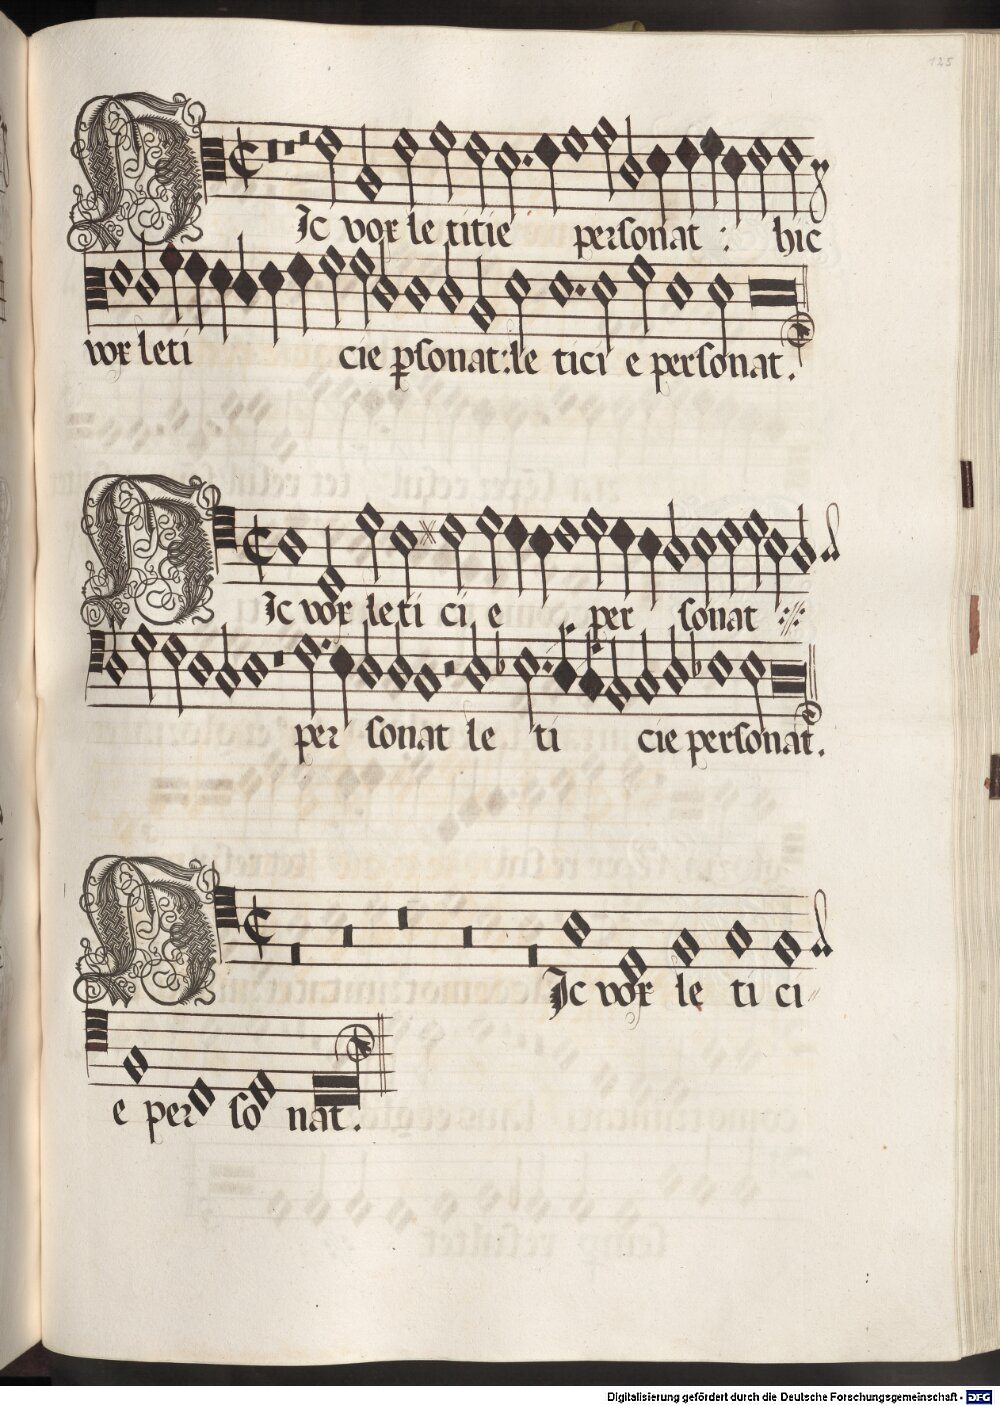 125
Hic vox letitie personat : hic
vox leti cie ꝑsonat : le tici e personat .
Hic vox leti ci e per sonat ://:
per sonat le ti cie personat .
Hic vox le ti ci
e per so nat .
Digitalisierung gefördert durch die Deutsche Forschungsgemeinschaft - DFG